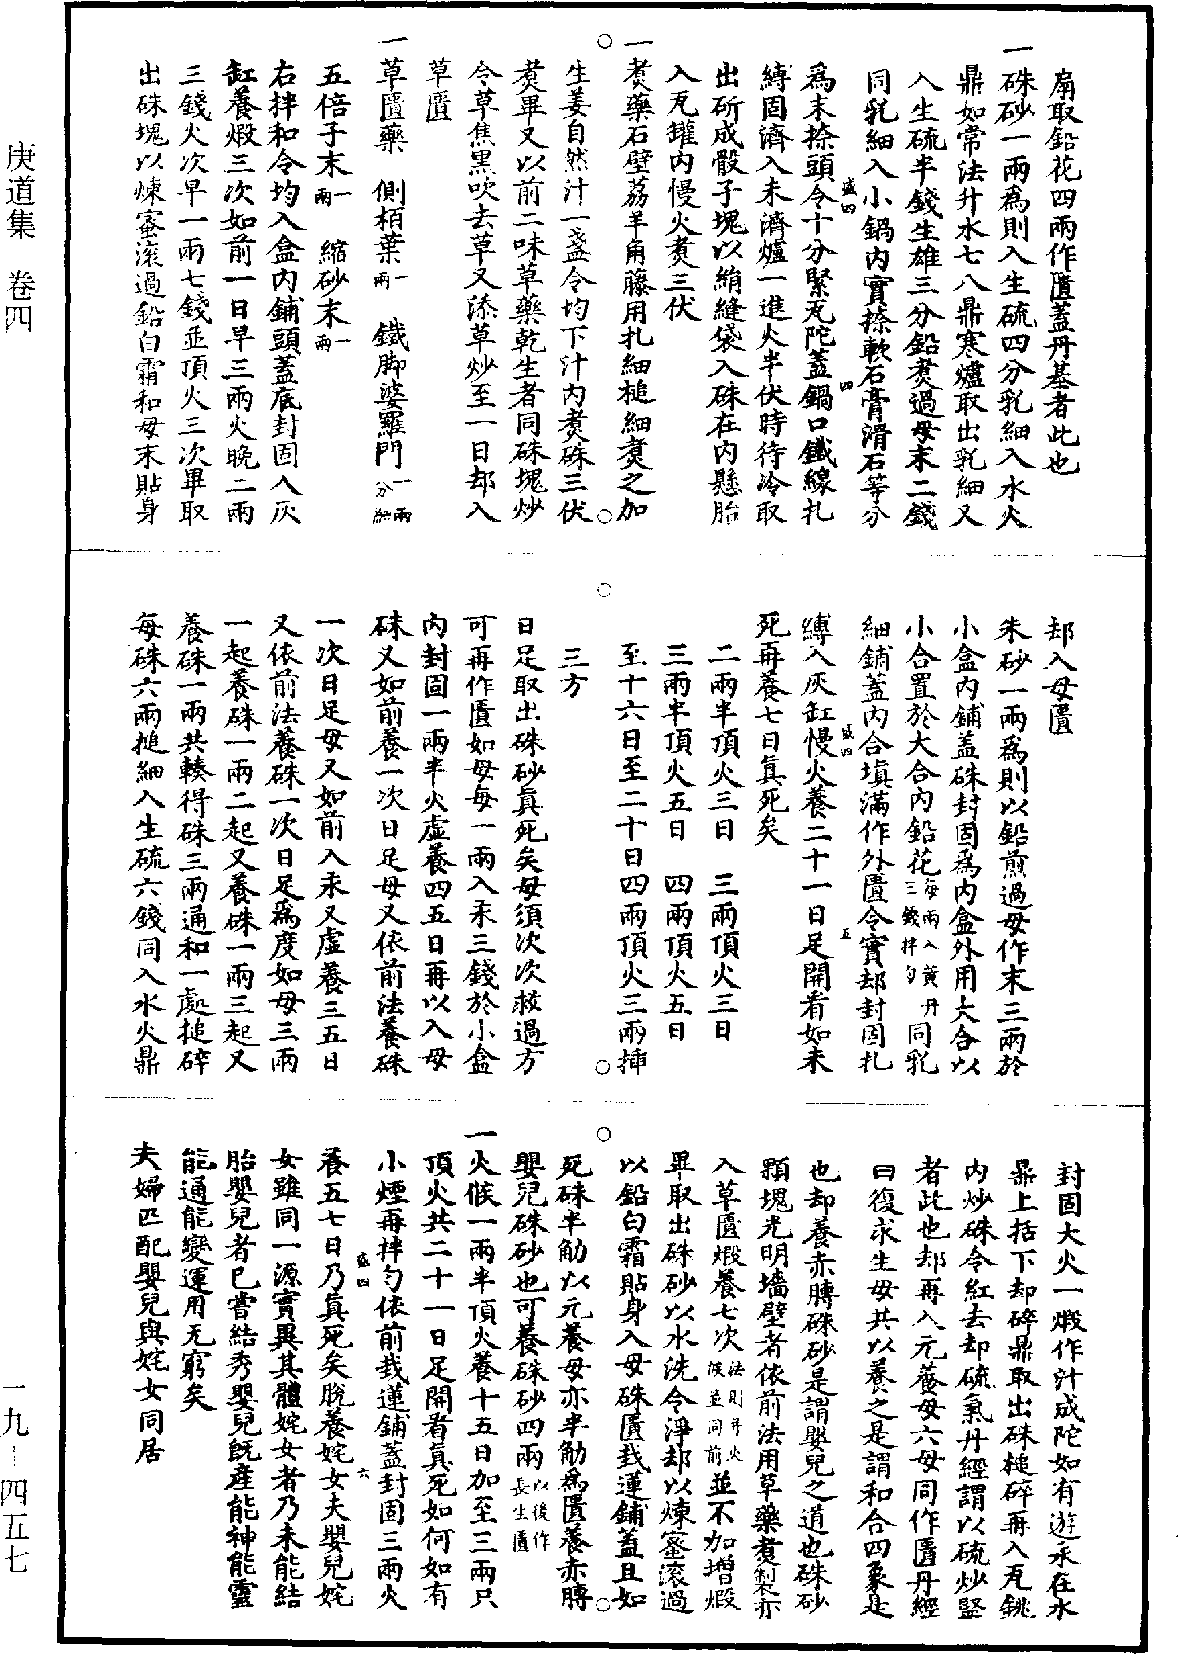 扁取鉛花四兩作匱蓋丹基者此也
一硃砂一兩爲則入生硫四分乳細入水火
鼎如常法升水七八鼎寒爐取出乳細又
入生硫半錢生雄三分鉛煑過母末二錢
同乳細入小鍋內實捺軟石膏滑石等分
爲末捺頭令十分緊瓦陀蓋鍋口鐵線扎
縛固濟入未濟爐一進火半伏時待冷取
出斫成骰子塊以絹縫袋入硃在內懸胎
入瓦罐內慢火煑三伏
一煑藥石壁荔羊角藤用扎細槌細煑之加
生姜自然汁一盞令均下汁內煑硃三伏
煑畢又以前二味草藥乾生者同硃塊炒
令草焦黑吹去草又添草炒至一日却入
草匱
一草匱藥　側栢葉一兩　鐵脚婆羅門一兩分細
五倍子末一兩　縮砂末一兩
右拌和令均入盒內鋪頭蓋底封固入灰
缸養煅三次如前一日早三兩火晚二兩
三錢火次早一兩七錢並頂火三次畢取
出硃塊以煉蜜滚過鉛白霜和母末貼身
却入母匱
朱砂一兩爲則以鉛煎過母作末三兩於
小盒內鋪蓋硃封固爲內盒外用大合以
小合置於大合內鉛花每兩入黄丹三錢拌勻同乳
細鋪蓋內合填滿作外匱令實却封固扎
縛入灰缸慢火養二十一日足開看如未
死再養七日真死矣
二兩半頂火三日　三兩頂火三日
三兩半頂火五日　四兩頂火五日
至十六日至二十日四兩頂火三兩揷
三方
日足取出硃砂真死矣母須次次救過方
可再作匱如母每一兩入汞三錢於小盒
內封固一兩半火虛養四五日再以入母
硃又如前養一次日足母又依前法養硃
一次日足母又如前入汞又虛養三五日
又依前法養硃一次日足爲度如母三兩
一起養硃一兩二起又養硃一兩三起又
養硃一兩共輳得硃三兩通和一處搥碎
每硃六兩搥細入生硫六錢同入水火鼎
封固大火一煅作汁成陀如有遊汞在水
鼎上括下却碎鼎取出硃槌碎再入瓦銚
內炒硃令紅去却硫氣丹經謂以硫炒堅
者此也却再入元養母六母同作匱丹經
曰復求生母共以養之是謂和合四象是
也却養赤膊硃砂是謂嬰兒之道也硃砂
顆塊光明墻壁者依前法用草藥煑製亦
入草匱煅養七次法則并火候並同前並不加增煅
畢取出硃砂以水洗令淨却以煉蜜滚過
以鉛白霜貼身入母硃匱栽蓮鋪蓋且如
死硃半觔以元養母亦半觔爲匱養赤膊
嬰兒硃砂也可養硃砂四兩以後作長生匱
一火候一兩半頂火養十五日加至三兩只
頂火共二十一日足開看真死如何如有
小煙再拌勻依前栽蓮鋪蓋封固三兩火
養五七日乃真死矣脫養姹女夫嬰兒姹
女雖同一源實異其體姹女者乃未能結
胎嬰兒者已嘗結秀嬰兒旣産能神能靈
能通能變運用无窮矣
夫婦匹配嬰兒與姹女同居
庚道集　卷四
一九—四五七